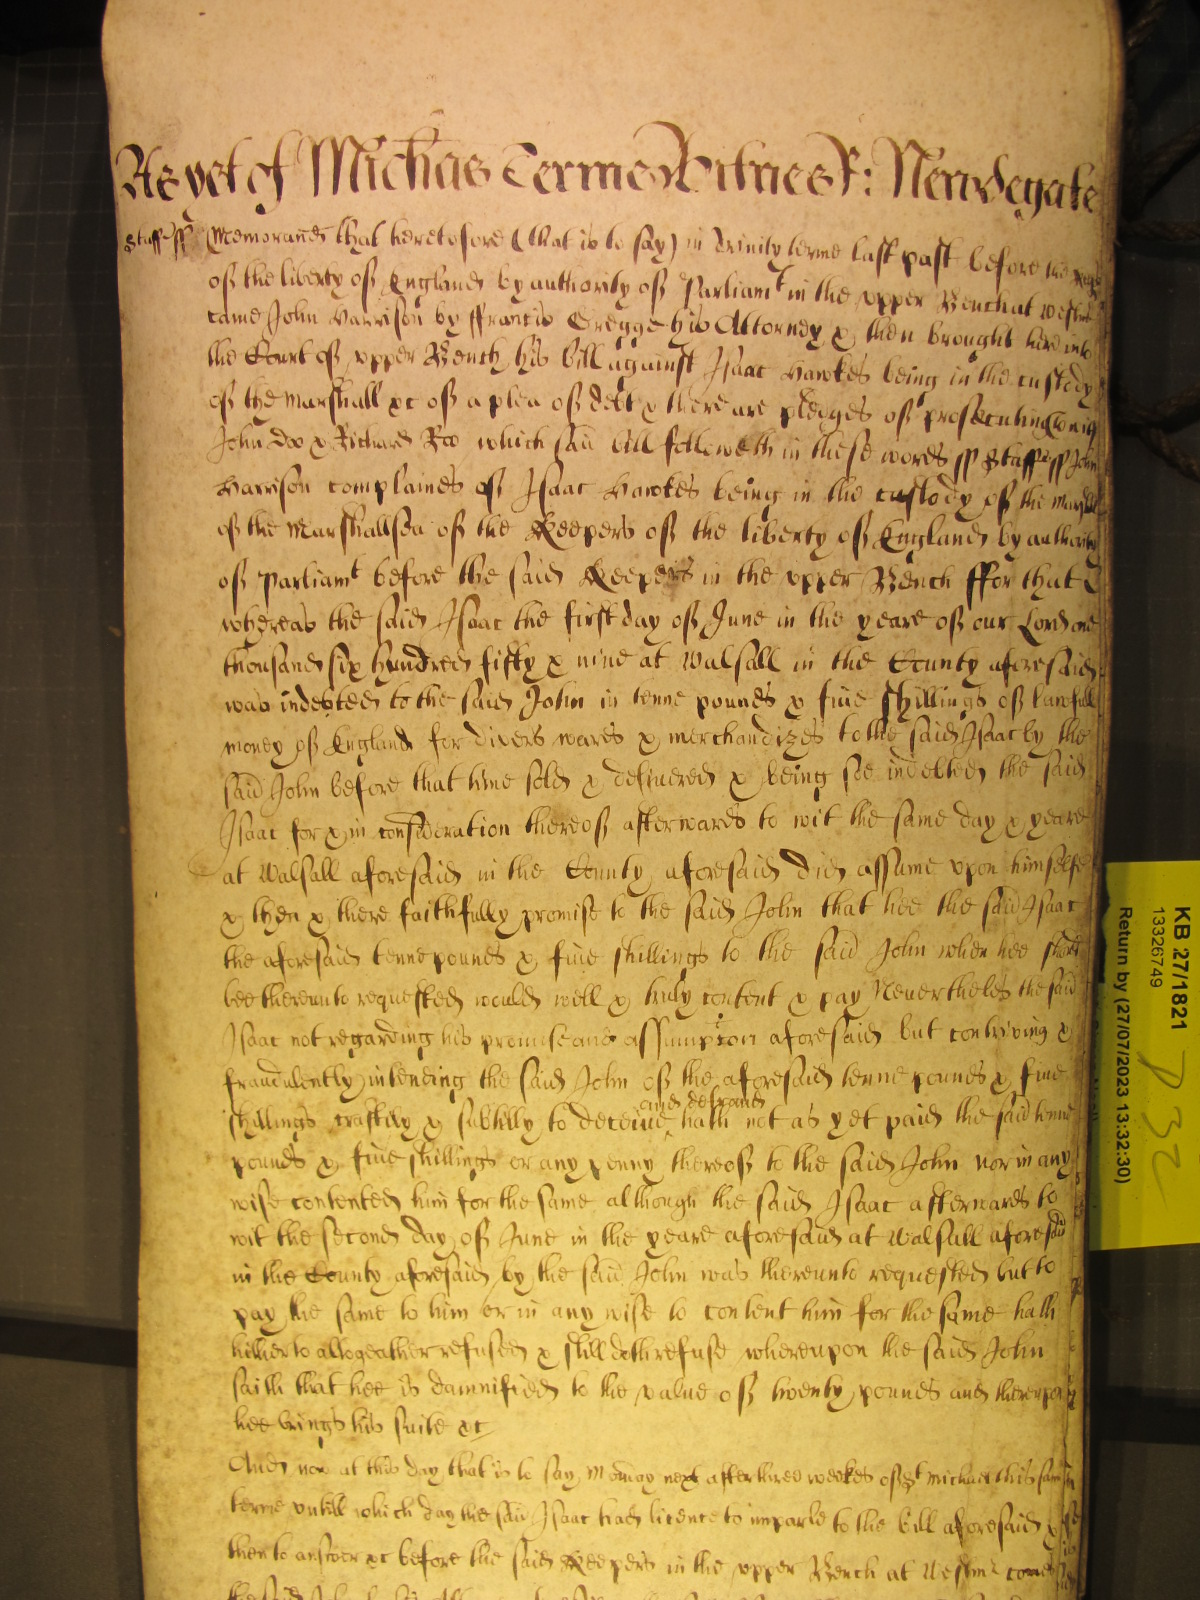 As yet of Michas Terme Witnes R: Newdegate
Staff ss Memorand that heretofore (that is to say) in Trinity terme last past before the keeps
of the liberty of England by authority of Parliamt in the upper Bench at Westmr
came John Harrison by ffrancis Gregge his Attorney & then brought here into
the Court of upper Bench his bill against Isaac Hawkes being in the custody
of the Marshall &c of a plea of debt & there are pledges of prosecuting to wit
John Doo & Richard Roo which said bill followeth in these words ss Staff ss John
Harrison complaines of Isaac Hawkes being in the custody of the Marshall
of the Marshallsea of the Keepers of the liberty of England by authority
of Parliamt before the said Keepers in the upper Bench ffor that
whereas the said Isaac the first day of June in the yeare of our Lord one
thousand six hundred fifty & nine at Walsall in the County aforesaid
was indebted to the said John in tenne pounds & five shillings of lawfull
money of England for divers wares & merchandizes to the said Isaac by the
said John before that time sold & delivered & being soe indebted the said
Isaac for & in consideration thereof afterwards to wit the same day & yeare
at Walsall aforesaid in the County aforesaid did assume upon himselfe
& then & there faithfully promise to the said John that hee the said Isaac
the aforesaid tenne pounds & five shillings to the said John when hee should
bee thereunto requested would well & truly content & pay Neverthelesse the said
Isaac not regarding his promise and assumption aforesaid but contriving &
fraudulently intending the said John of the aforesaid tenne pounds & five
and defraud
shillings craftily & subtilly to deceive hath not as yet paid the said tenne
pounds & five shillings or any penny thereof to the said John nor in any
wise contented him for the same although the said Isaac afterwards to
wit the second day of June in the yeare aforesaid at Walsall aforesaid
in the County aforesaid by the said John was thereunto requested but to
pay the same to him or in any wise to content him for the same hath
hitherto altogeather refused & still doth refuse whereupon the said John
saith that hee is damnified to the value of twenty pounds and thereupon
hee brings his suite &c
And now at this day that is to say Monday next after three weekes of St Michael this same
terme untill which day the said Isaac had licence to imparle to the bill aforesaid &
then to answer &c before the said Keepers in the upper Bench at Westmr comes
KB 27/1821
13326749
Return by (27/07/2023 13:32:30)
732